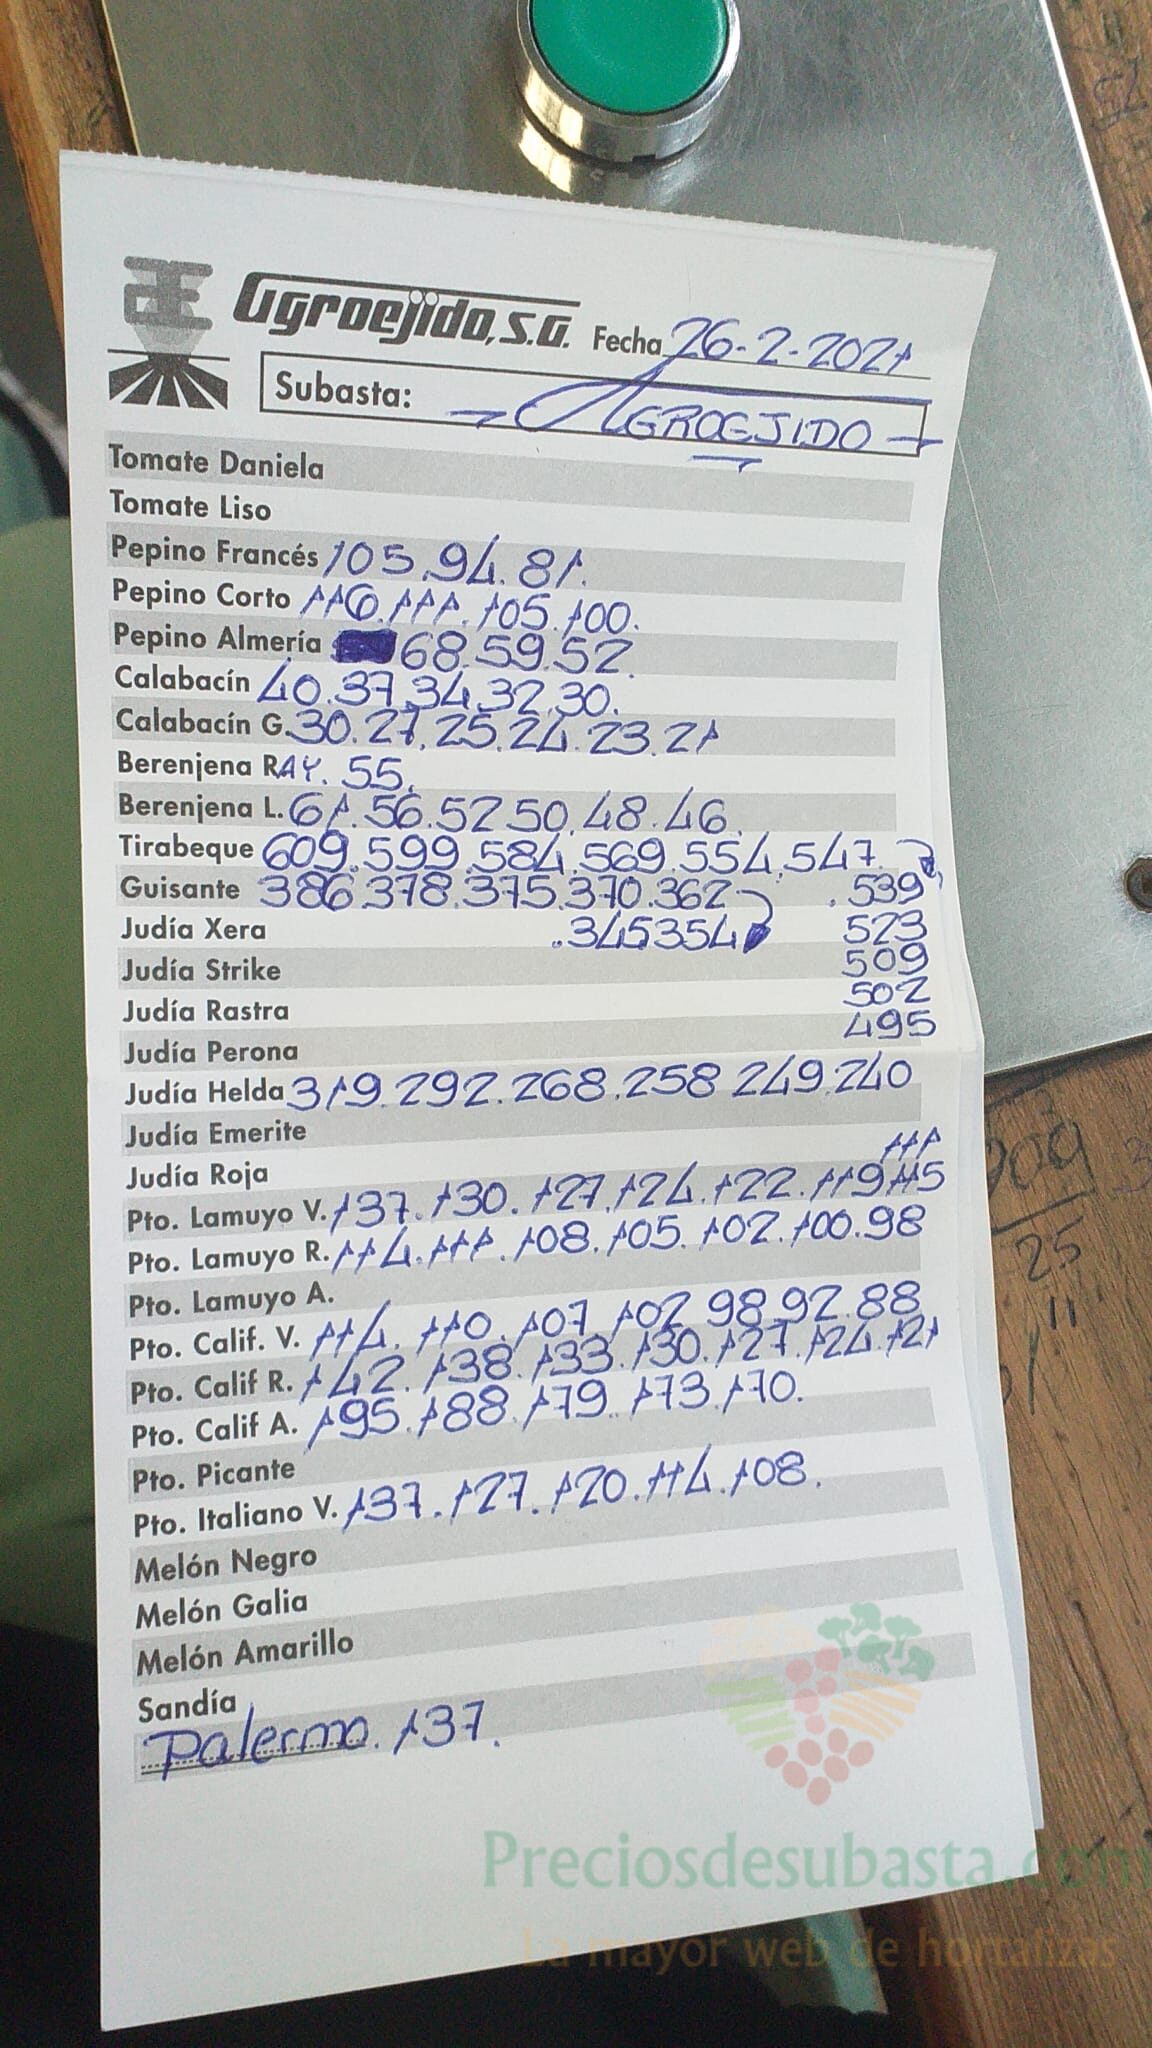 Agroejido, S.A. Fecha 26-2-2021
Subasta: AGROEJIDO
Tomate Daniela
Tomate Liso
Pepino Francés 105.94.81.
Pepino Corto 116.111.105.100.
Pepino Almería 68.59.52.
Calabacín 40.37.34.32.30.
Calabacín G. 30.27.25.24.23.21
Berenjena RAY. 55.
Berenjena L. 61.56.52 50.48.46.
Tirabeque 609.599.584.569.554.547
Guisante 386.378.375.370.362 .539
Judía Xera .345354 523
Judía Strike 509
Judía Rastra 502
Judía Perona 495
Judía Helda 319.292.268.258 249.240
Judía Emerite
Judía Roja 111
Pto. Lamuyo V. 137.130.127.124.122.119.115
Pto. Lamuyo R. 114.111.108.105.102.100.98
Pto. Lamuyo A.
Pto. Calif. V. 114.110.107.102 98.92.88
Pto. Calif R. 142.138.133.130.127.124.121
Pto. Calif A. 195.188.179.173.170.
Pto. Picante
Pto. Italiano V. 137.127.120.114.108.
Melón Negro
Melón Galia
Melón Amarillo
Sandía
Palermo. 137.
Preciosdesubasta.com
La mayor web de hortalizas
209
25
11